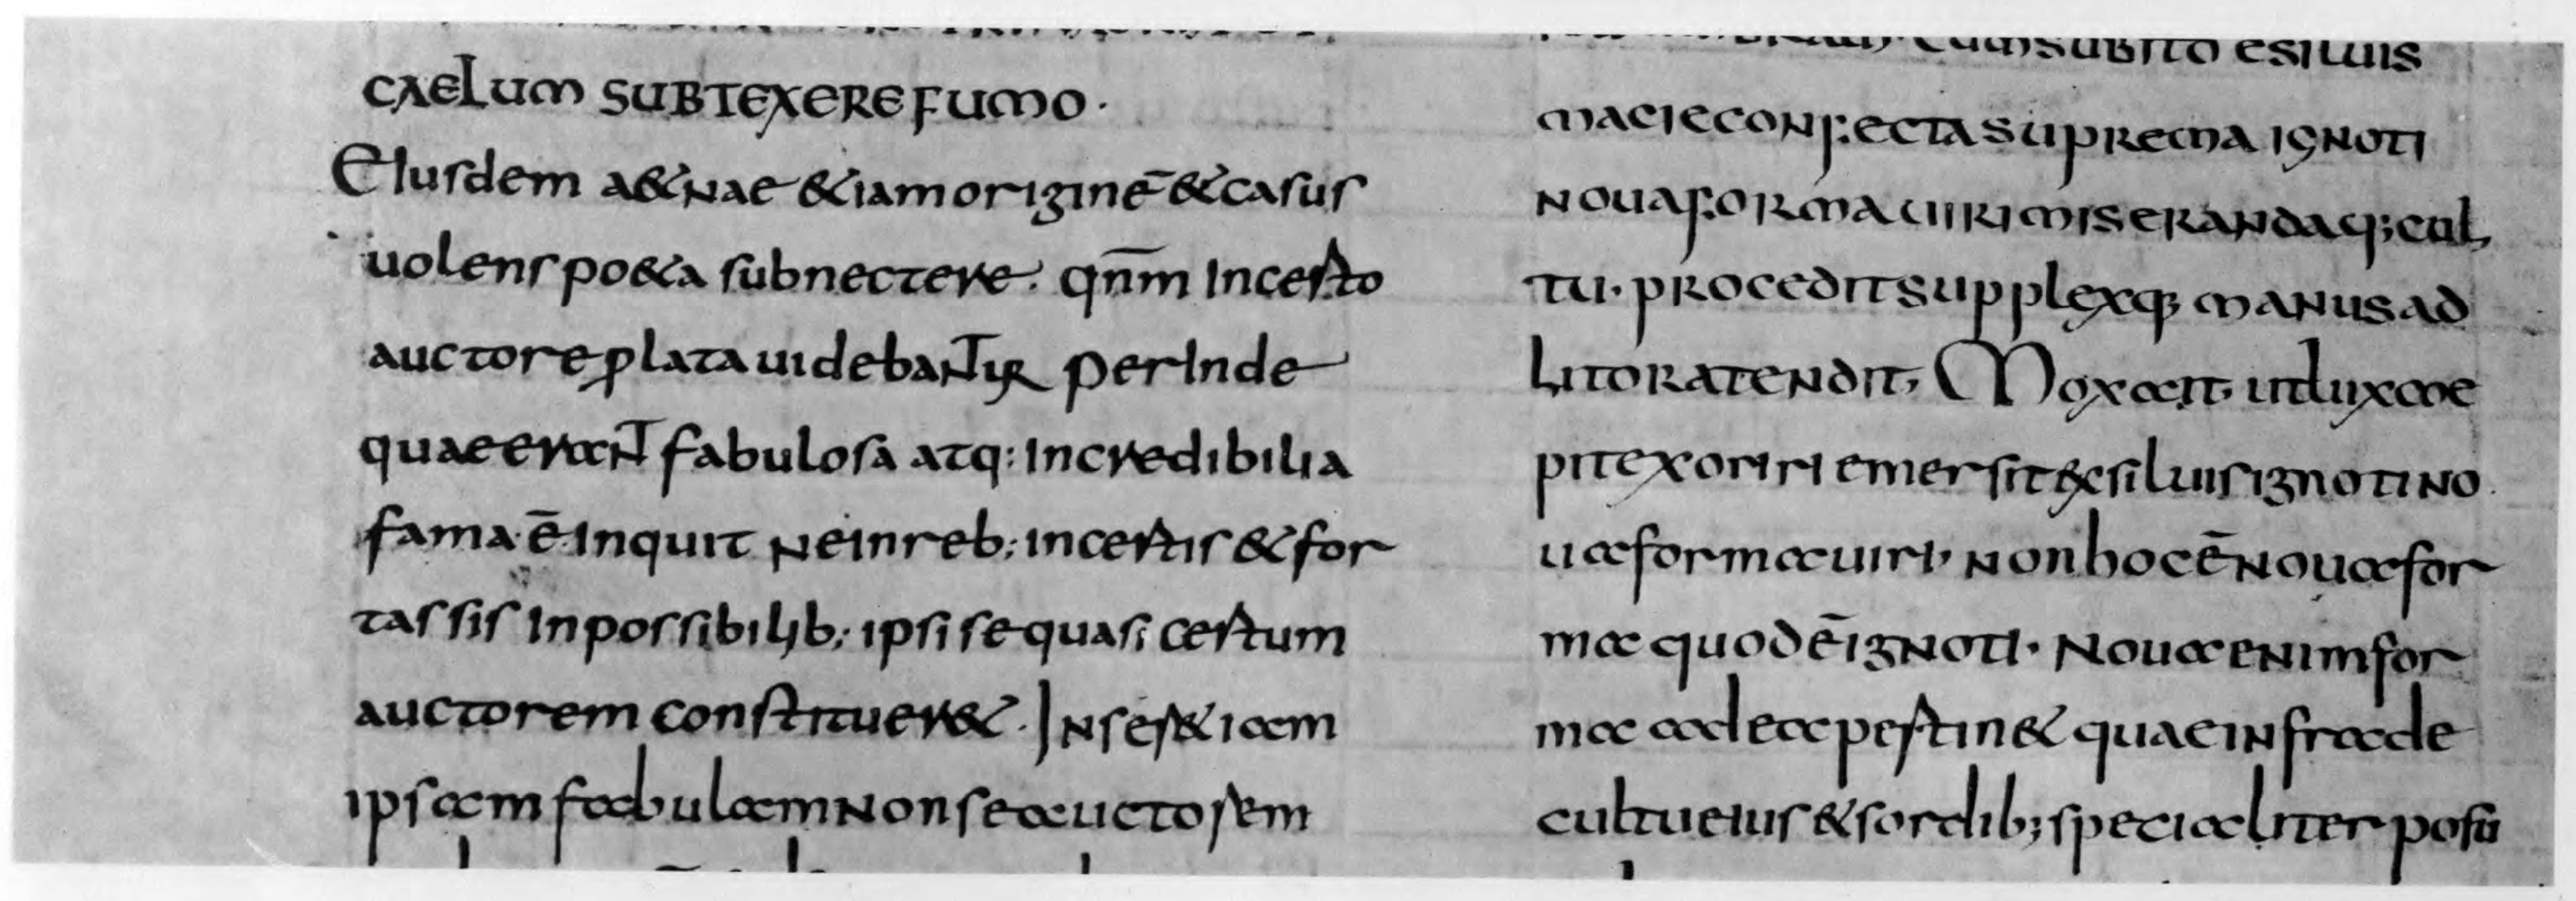 CAELUM SUBTEXERE FUMO·
Eiusdem a&nae &iam originē & casus
uolens po&a subnectere. qnm̄ Incerto
auctore plata uidebantur perInde
quae erant fabulosa atq: Incredibilia
fama ē Inquit Ne in reb; incertis & for
tassis In possibilib; ipsi se quasi certum
auctorem constituer&. INses& iam
ipsam fabulam Non se auctorem
CUM SUBITO E SILUIS
MACIE CONFECTA SUPREMA IGNOTI
NOUA FORMA UIRI MISERANDAQ; CUL
TU· PROCEDIT SUPPLEXQ; MANUS AD
LITORA TENDIT, Mox ait, ut lux coe
pit exoriri emersit & siluis ignoti no
ua forma uiri, Non hoc ē Noua for
ma quod ē ignoti· Noua enim for
ma ad ea pertin& quae infra de
cultu eius & sordib; specialiter posu